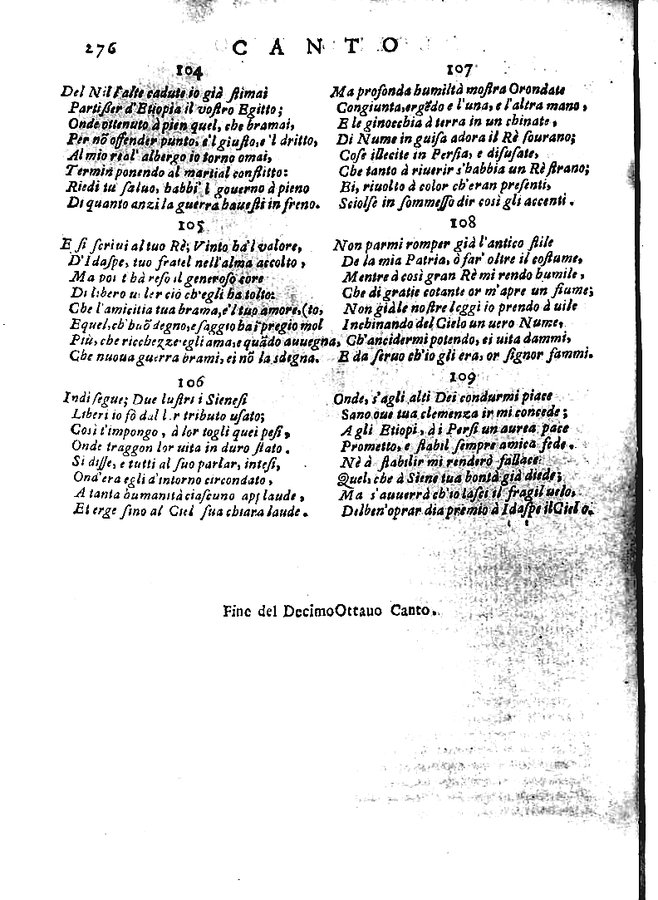 276 CANTO
104
Del Nil l'alte cadute io già ſtimai
Partiſſer d'Etiopia il voſtro Egitto;
Onde ottenuto à pien quel, che bramai,
Per nõ offender punto, e'l giuſto, e 'l dritto,
Al mio real' albergo io torno omai,
Termin ponendo al martial conflitto:
Riedi tù ſaluo, babbi 'l gouerno à pieno
Di quanto anzi la guerra haueſti in freno.
105
E ſi ſcriui al tuo Rè; Vinto ha'l valore,
D'Idaſpe, tuo fratel nell'alma accolto,
Ma poi t'hà reſo il generoſo core
Di libero ciò ch'egli ha tolto:
Che l'amicitia tua brama, e'l tuo amore, (to,
E quel, ch' buõ degno, e ſaggio ha i'pregio mol
Più, che ricchezze egli ama, e quãdo auuegna,
Che nuoua guerra brami, ei nõ la sdegna.
106
Indi ſegue; Due luſtri i Sieneſi
Liberi io fò dal lor tributo uſato;
Così t'impongo, à lor togli quei peſi,
Onde traggon lor uita in duro ſtato.
Sì diſſe, e tutti al ſuo parlar, inteſi,
Ond'era egli d'intorno circondato,
A tanta humanità ciaſcuno applaude,
Et erge fino al Ciel ſua chiara laude.
107
Ma profonda humiltà moſtra Orondate
Congiunta, ergẽdo e l'una, e l'altra mano,
E le ginocchia à terra in un chinate,
Di Nume in guiſa adora il Rè ſourano;
Coſe illecite in Perſia, e diſuſate,
Che tanto à riuerir s'habbia un Rè ſtrano;
Ei, riuolto à color ch'eran preſenti,
Sciolſe in ſommeſſo dir così gli accenti.
108
Non parmi romper già l'antico ſtile
De la mia Patria, ò far' oltre il coſtume,
Mentre à così gran Rè mi rendo humile,
Che di gratie cotante or m'apre un fiume;
Non già le noſtre leggi io prendo à uile
Inchinando del Cielo un uero Nume,
Ch'ancidermi potendo, ei uita dammi,
E da ſeruo ch'io gli era, or ſignor fammi.
109
Onde, s'agli alti Dei condurmi piace
Sano oue tua clemenza ir mi concede;
A gli Etiopi, à i Perſi un'aurea pace
Prometto, e ſtabil ſempre amica fede.
Nè à ſtabilir mi renderò fallace
Quel, che à Siene tua bontà già diede;
Ma s'auuerrà ch'io laſci il fragil uelo,
Del ben'oprar dia premio à Idaſpe il Cielo.
Fine del DecimoOttauo Canto.